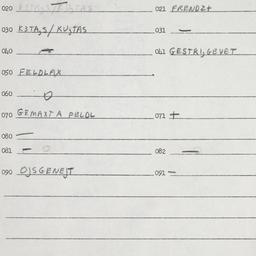 020 — 021 FRENDZ+
030 K3TA,S / KU,TAS 031 —
040 — 041 GESTRI,GEVET
050 FELDLAX
060 0
070 GEMAXT A FELDL 071 +
080 —
081 — 082 —
090 OJSGENEJT 091 —